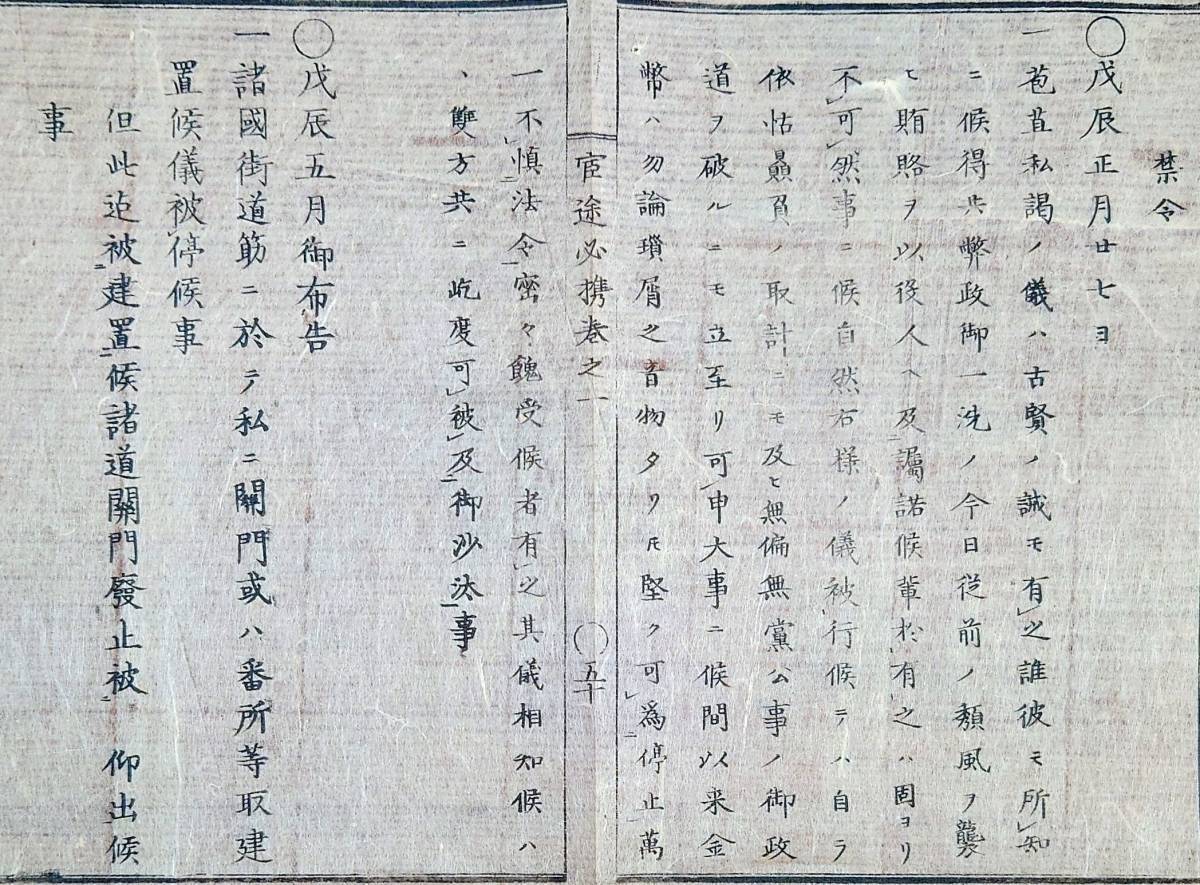 禁令
◯戊辰正月廿七ヨ
一苞苴私謁ノ儀ハ古賢ノ誠モ有之誰彼モ所知
ニ候得共弊政御一洗ノ今日従前ノ頽風ヲ襲
ヒ賄賂ヲ以役人ヘ及囑諾候輩於有之ハ固ヨリ
不可然事ニ候自然右様ノ儀被行候テハ自ラ
依怙贔負ノ取計ニモ及ヒ無偏無黨公事ノ御政
道ヲ破ルニモ立至リ可申大事ニ候間以来金
幣ハ勿論瑣屑之音物タリ𪜈堅ク可爲停止萬
一不慎法令密々餽受候者有之其儀相知候ハ
、雙方共ニ屹度可被及御沙汰事
宦途必携巻之一
◯五十
◯戊辰五月御布告
一諸國街道筋ニ於テ私ニ關門或ハ番所等取建
置候儀被停候事
但此迄被建置候諸道關門廢止被 仰出候
事